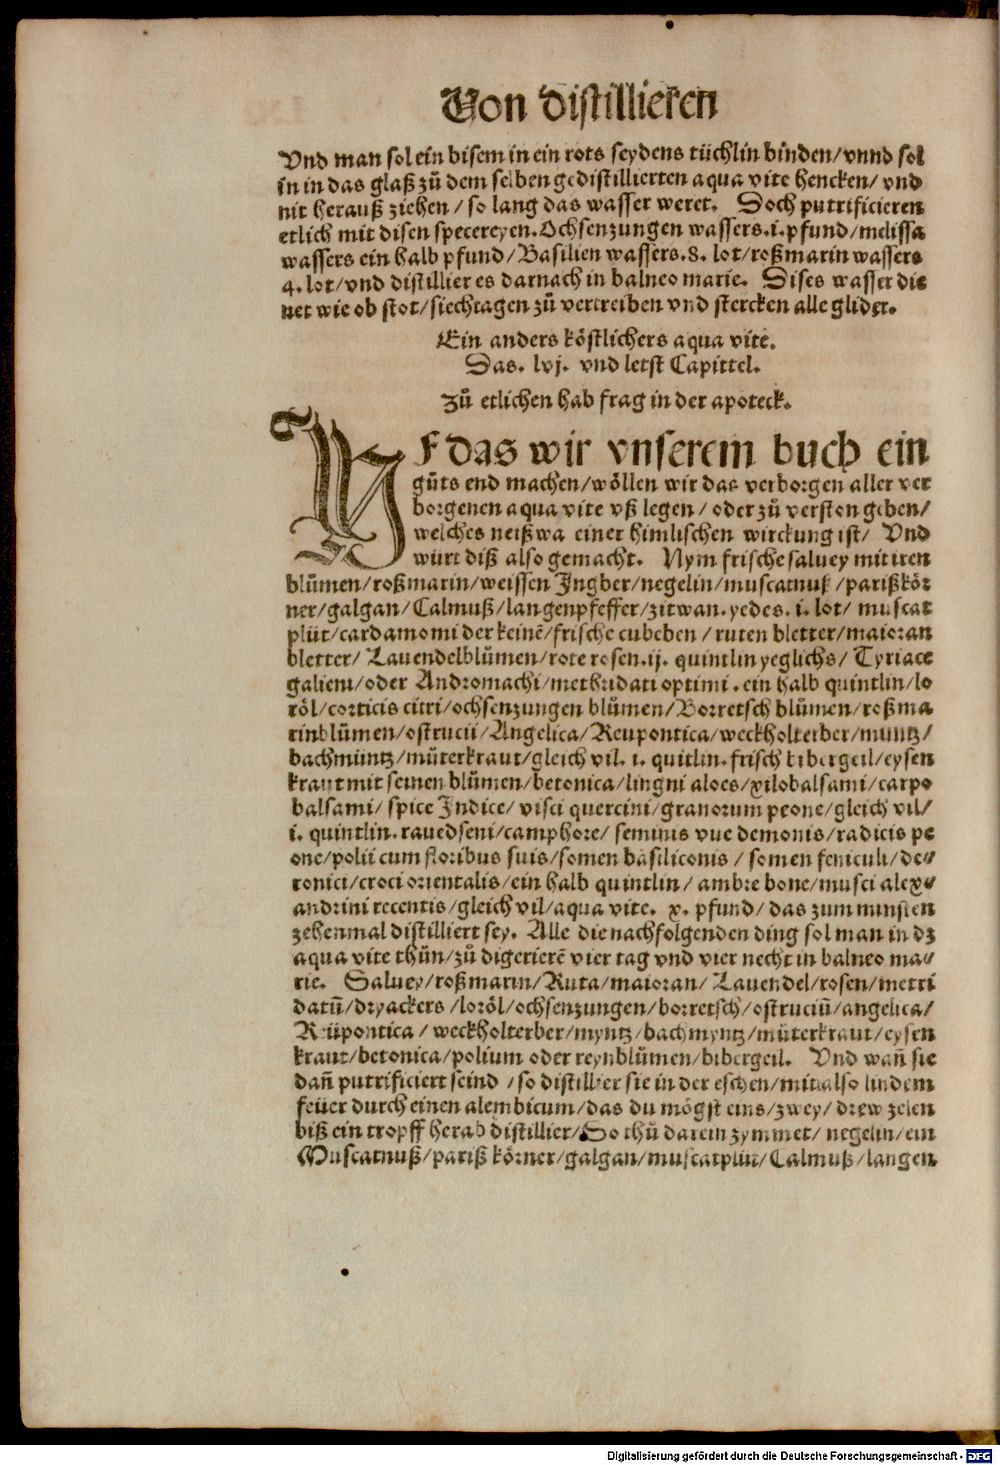 Von distillieren
Vnd man sol ein bisem in ein rots seydens tüchlin binden/vnnd sol
in in das glaß zů dem selben gedistillierten aqua vite hencken/ vnd
nit herauß ziehen / so lang das wasser weret. Doch putrificieren
etlich mit disen specereyen. Ochsenzungen wassers.i.pfund/melissa
wassers ein halb pfund/Basilien wassers.8. lot/roßmarin wassers
4. lot/vnd distillier es darnach in balneo marie. Dises wasser die
net wie ob stot/siechtagen zů vertreiben vnd stercken alle glider.
Ein anders köstlichers aqua vite.
Das. lvj. vnd letst Capittel.
Zů etlichen hab frag in der apoteck.
VF das wir vnserem buch ein
gůts end machen/wöllen wir das verborgen aller ver
borgenen aqua vite vß legen / oder zů verston geben/
welches neißwa einer himlischen wirckung ist/ Vnd
würt diß also gemacht. Nym frische saluey mit iren
blůmen/roßmarin/weissen Ingber/negelin/muscatnuß /parißkör
ner/galgan/Calmuß/langenpfeffer/zitwan.yedes. i. lot/ muscat
plüt/cardamomi der keinē/frische cubeben / ruten bletter/maioran
bletter/ Lauendelblůmen/rote rosen.ij. quintlin yeglichs/ Tyriace
galieni/oder Andromachi/methridati optimi . ein halb quintlin/lo
röl/corticis citri/ochsenzungen blůmen/Borretsch blůmen/roßma
rinblůmen/ostrucii/Angelica/Reupontica/weckholterber/muntz/
bachmüntz/můterkraut/gleich vil. i. quitlin. frisch bibergeil/eysen
kraut mit seinen blůmen/betonica/lingni aloes/xilobalsami/carpo
balsami/ spice Indice/ visci quercini/granorum peone/gleich vil/
i. quintlin. rauedseni/camphore/ seminis vue demonis/radicis pe
one/polii cum floribus suis/somen basiliconis / somen feniculi/de⸗
ronici/croci orientalis/ein halb quintlin/ ambre bone/musci alex⸗
andrini recentis/gleich vil/aqua vite. x. pfund/ das zum minsten
zehenmal distilliert sey. Alle die nachfolgenden ding sol man in dz
aqua vite thůn/zů digerierē vier tag vnd vier necht in balneo ma⸗
rie. Saluey/roßmarin/Ruta/maioran/ Lauendel/rosen/metri
datū/dryackers /loröl/ochsenzungen/borretsch/ostruciū/angelica/
Reüpontica / weckholterber/myntz/bachmyntz/můterkraut/eysen
kraut/betonica/polium oder reynblůmen/bibergeil. Vnd wañ sie
dañ putrificiert seind /so distillier sie in der eschen/mit also lindem
feüer durch einen alembicum/das du mögst eins/zwey/drew zelen
biß ein tropff herab distillier/So thů darein zymmet/ negelin/ein
Muscatnuß/pariß körner/galgan/muscatplüt/Calmuß/langen
Digitalisierung gefördert durch die Deutsche Forschungsgemeinschaft - DFG